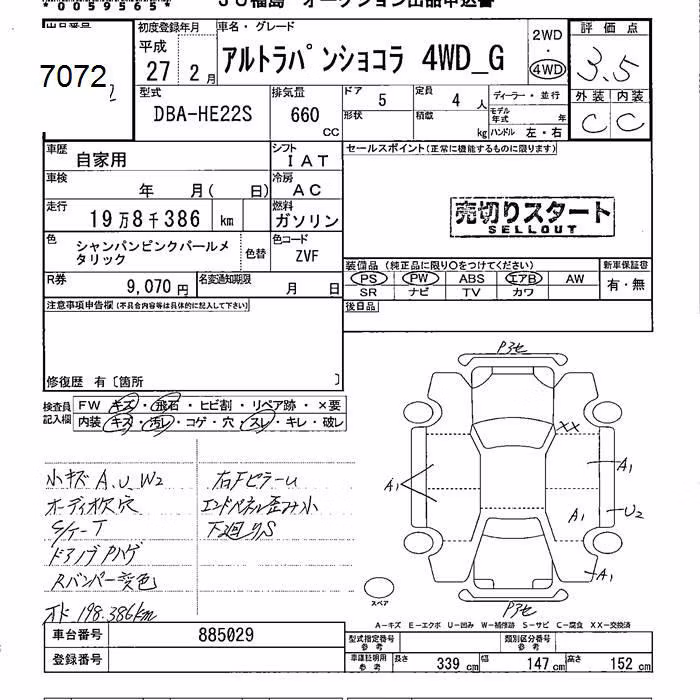 *0059565*
JU福島 オークション出品申込書
出品番号
7072
初度登録年月
平成
27 2月
車名・グレード
アルトラパンショコラ 4WD_G
2WD
・
4WD
評価点
3.5
外装 内装
C C
型式
DBA-HE22S
排気量
660
CC
ドア 5
定員 4 人
形状
積載 kg
ディーラー・並行
モデル年式 年
ハンドル 左・右
車歴 自家用
シフト IAT
セールスポイント(正常に機能するものに限ります)
車検 年 月( 日)
冷房 AC
走行 19万8千386 km
燃料 ガソリン
売切りスタート
SELLOUT
色 シャンパンピンクパールメタリック
色替
色コード ZVF
装備品 (純正品に限り〇をつけてください)
新車保証書
PS PW ABS エアB AW
SR ナビ TV カワ
有・無
R券 9,070円
名変通知期限 月 日
注意事項申告欄(不具合内容等は具体的に記入して下さい)
後日品
修復歴 有〔箇所 〕
検査員記入欄
FW キズ・飛石・ヒビ割・リペア跡・×要
内装 キズ・汚レ・コゲ・穴・スレ・キレ・破レ
小キズA、U、W2
オーディオ欠穴
S/ケーT
ドアノブPハゲ
Rバンパー変色
オド 198,386km
右Fピラー U
エンドパネル歪み小
下廻りS
P3セ
XX
A1
A1
A1
U2
A1
P3セ
スペア
A-キズ E-エクボ U-凹み W-補修跡 S-サビ C-腐食 XX-交換済
車台番号 885029
登録番号
型式指定番号 参考
類別区分番号 参考
車庫証明用 参考
長さ 339 cm 幅 147 cm 高さ 152 cm